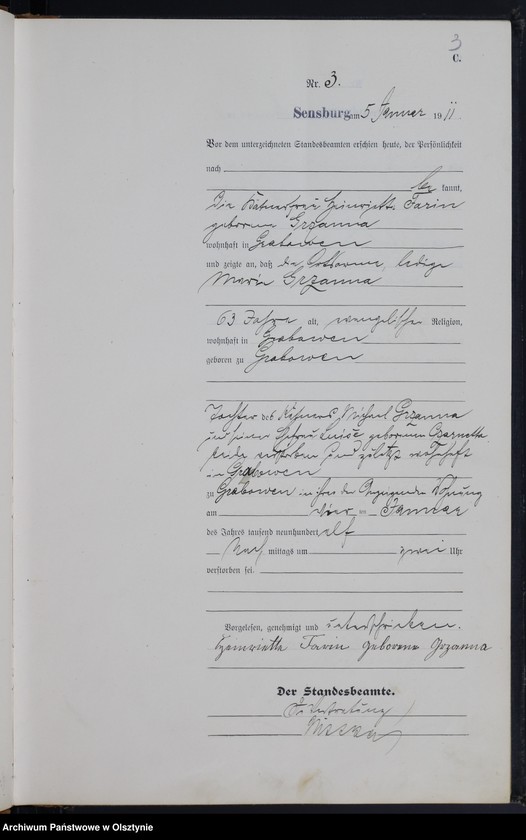 3
C.
Nr. 3.
Sensburg am 5 Januar 1911
Vor dem unterzeichneten Standesbeamten erschien heute, der Persönlichkeit
nach
be kannt,
die Käthnerfrau Heinriette Farin
geborene Grzanna
wohnhaft in Grabowen
und zeigte an, daß die Ortsarme, ledige
Marie Grzanna
63 Jahre alt, evangelischer Religion,
wohnhaft in Grabowen
geboren zu Grabowen
Tochter des Käthners Michael Grzanna
und seiner Ehefrau geborene Czarnetta
beide verstorben und zuletzt wohnhaft
in Grabowen
zu Grabowen in ihrer der Anzeigenden Wohnung
am vier ten Januar
des Jahres tausend neunhundert elf
Nach mittags um zwei Uhr
verstorben sei.
Vorgelesen, genehmigt und unterschrieben.
Heinriette Farin geborene Grzanna
Der Standesbeamte.
In Vertretung
Archiwum Państwowe w Olsztynie
www.szukajwarchiwach.gov.pl